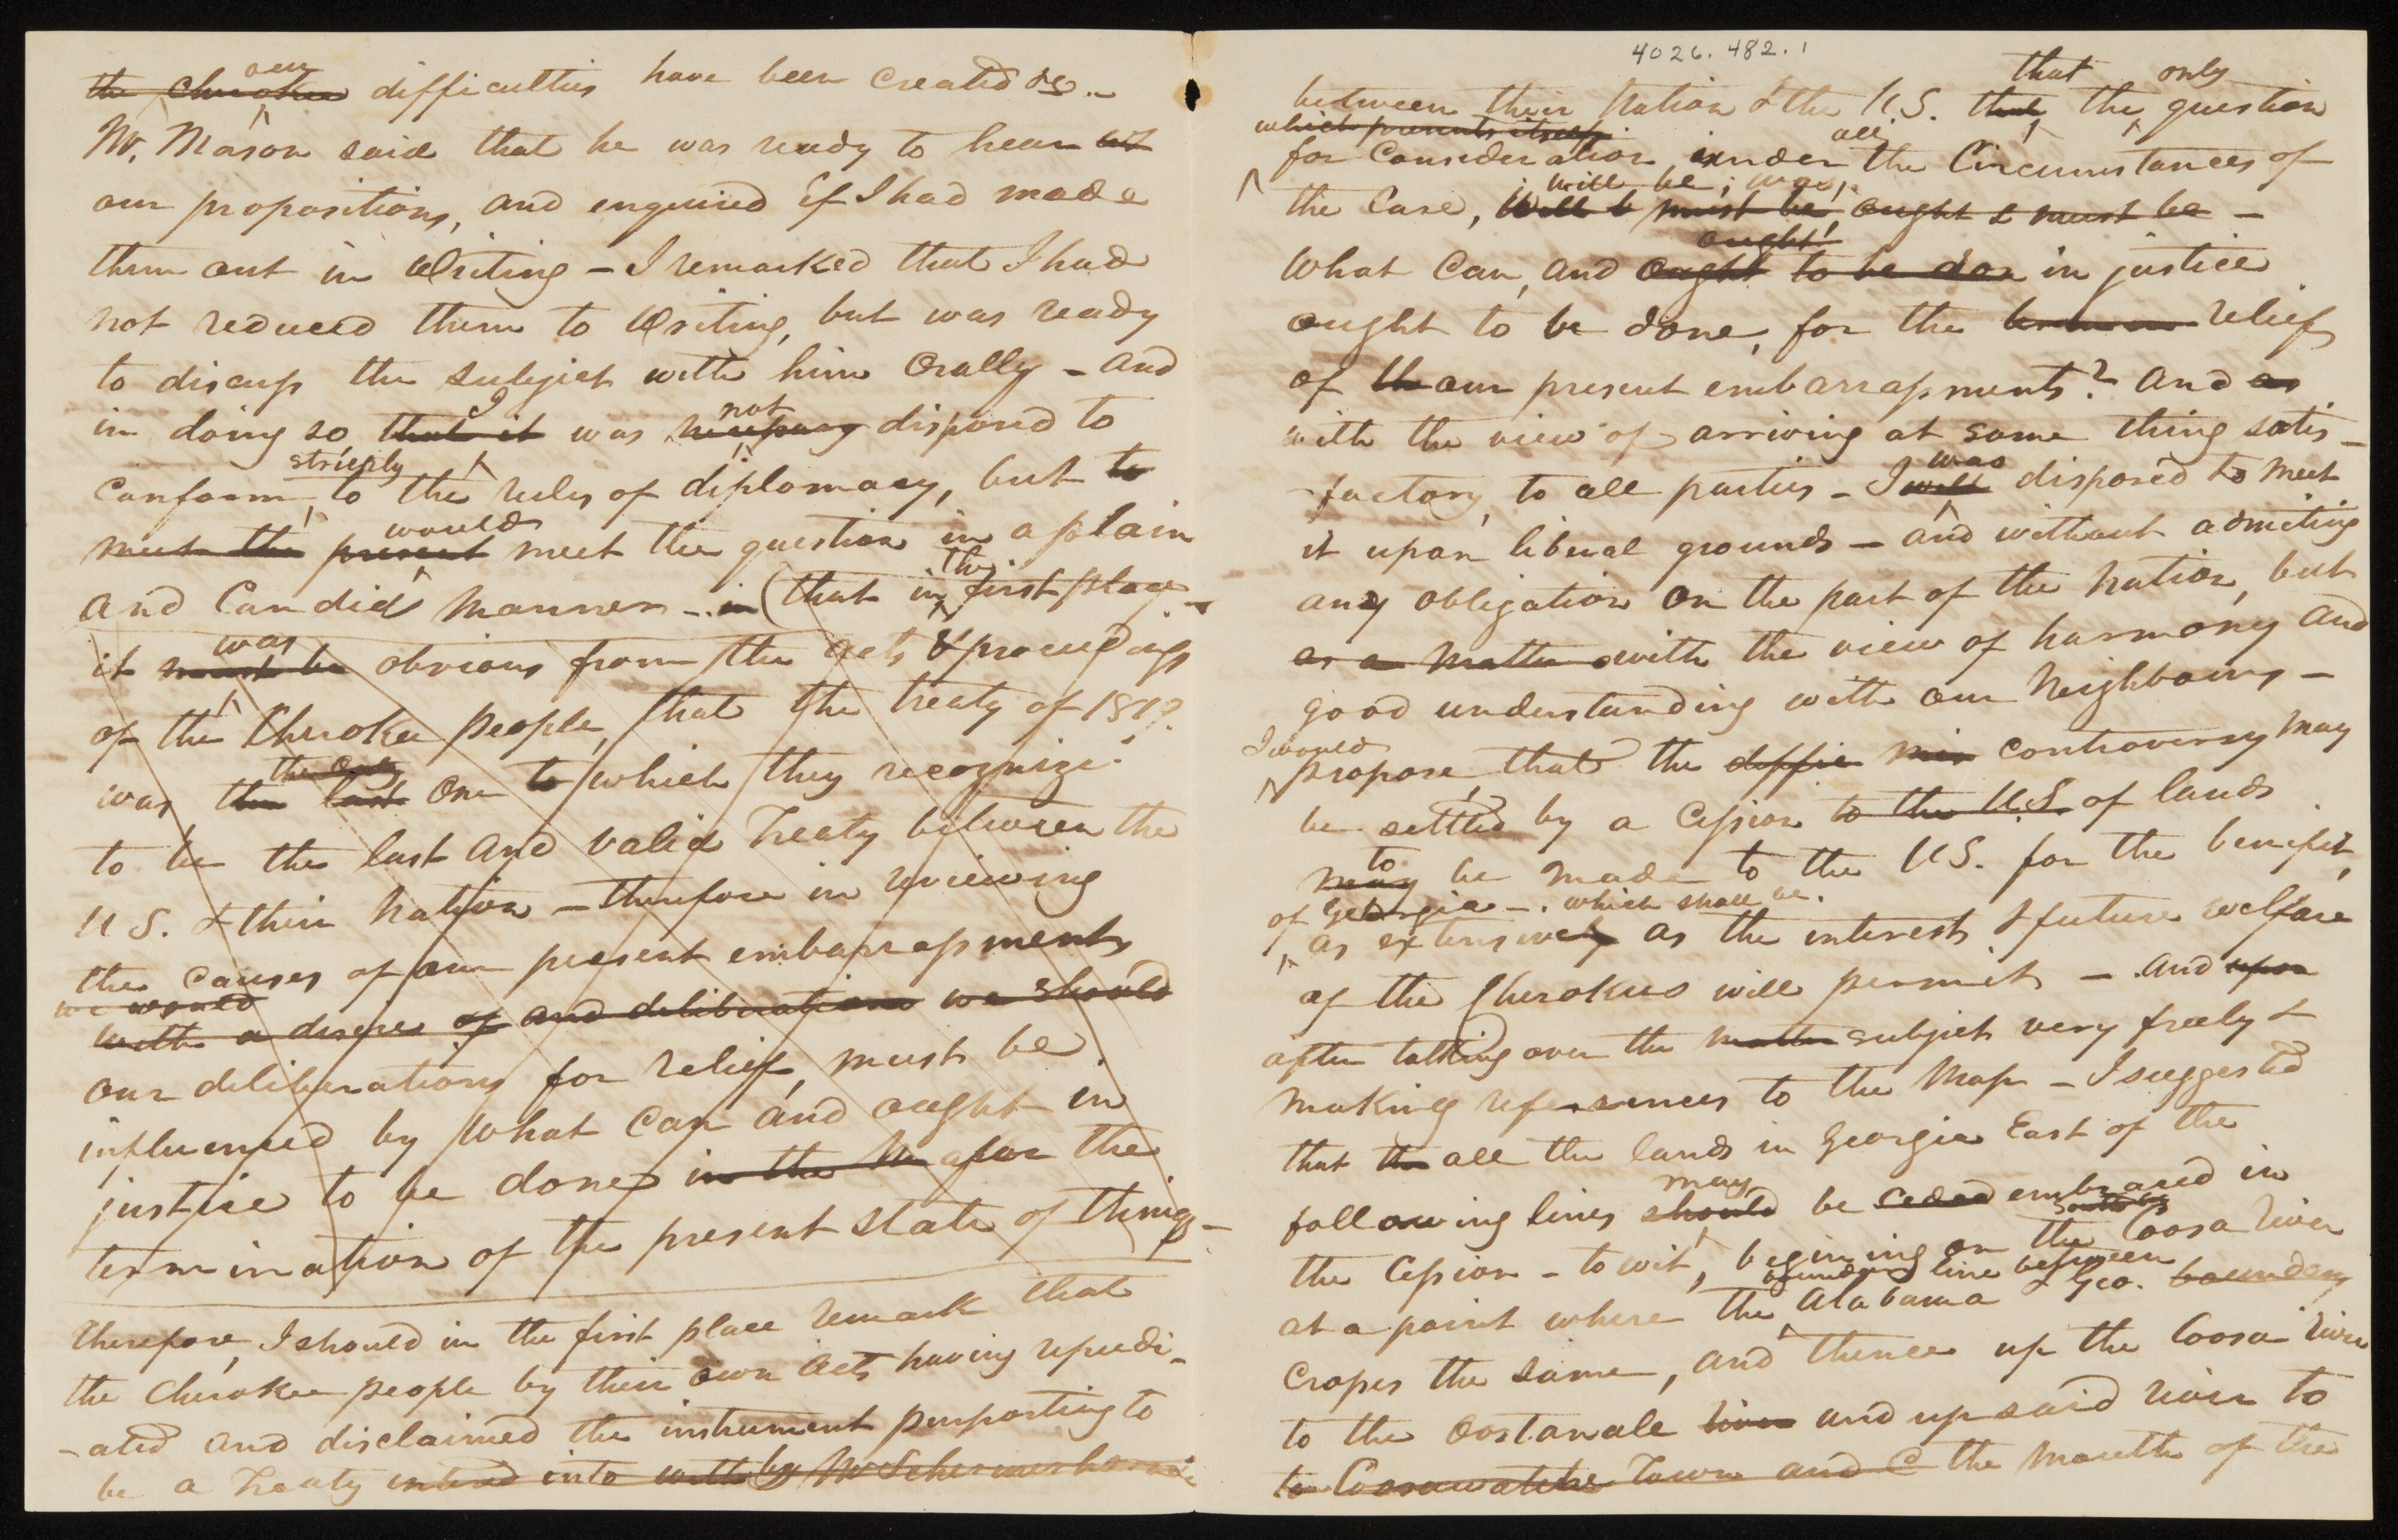 our
the Cherokee difficulties have been created &c..
Mr. Mason said that he was ready to hear
our propositions, and enquired if I had made
them out in Writing – I remarked that I had
not reduced them to Writing, but was ready
to discuss the subject with him Orally – and
I not
in doing so, that it was necessary disposed to
strictly
conform, to the rules of diplomacy, but to
would
meet the present meet the question in a plain
the
and Candid manner – in (that in first place –
was
it must be obvious from the acts & proceedings
of the Cherokee people, that the treaty of
the only
was the last one to which they recognize
to be the last and valid Treaty between the
U S. & their Nation – therefore in reviewing
the causes of our present embarrassments
we would
with a desire of and deliberations we should
our deliberations for relief, must be
influenced by what can and ought in
justice to be done in the for the
termination of the present state of things –
therefore, I should in the first place remark that
the Cherokee people by their own acts having repudi-
-ated and disclaimed the instrument purporting to
be a Treaty entered into with by Mr Schermerhorn
4026.482.1
that only
between their Nation & the U.S. that, the, question
which presents itself
all
for Consideration, under the Circumstances of
will be; was,
the Case, will b must be ought & must be –
ought
What Can, and ought to be don in justice
ought to be done, for the relief
of th our present embarrassments? and as
with the view of arriving at some thing satis-
was
factory, to all parties – I will disposed to meet
it upon liberal grounds – and without admiting
any obligation on the part of the Nation, but
as a matter with the view of harmony and
good understanding with our Neighbours –
I would
propose, that the diffic controversy may
be settled by a Cession to the U.S. of lands
to
may be made to the U S. for the benefit,
of Georgia – . which shall be.
as extensively as the interests & future welfare
of the Cherokees will permit – and upon
after talking over the matter subject very freely &
making references to the Map – I suggested
that the all the lands in Georgia East of the
may
following lines should be ceded embraced in
the Cession – to wit, begining on the Coosa River
boundary line between
at a point where the Alabama & Geo. boundary
crosses the same, and thence up the Coosa River
to the Oostanale river and up said river to
to Coosawattee Town and the mouth of the